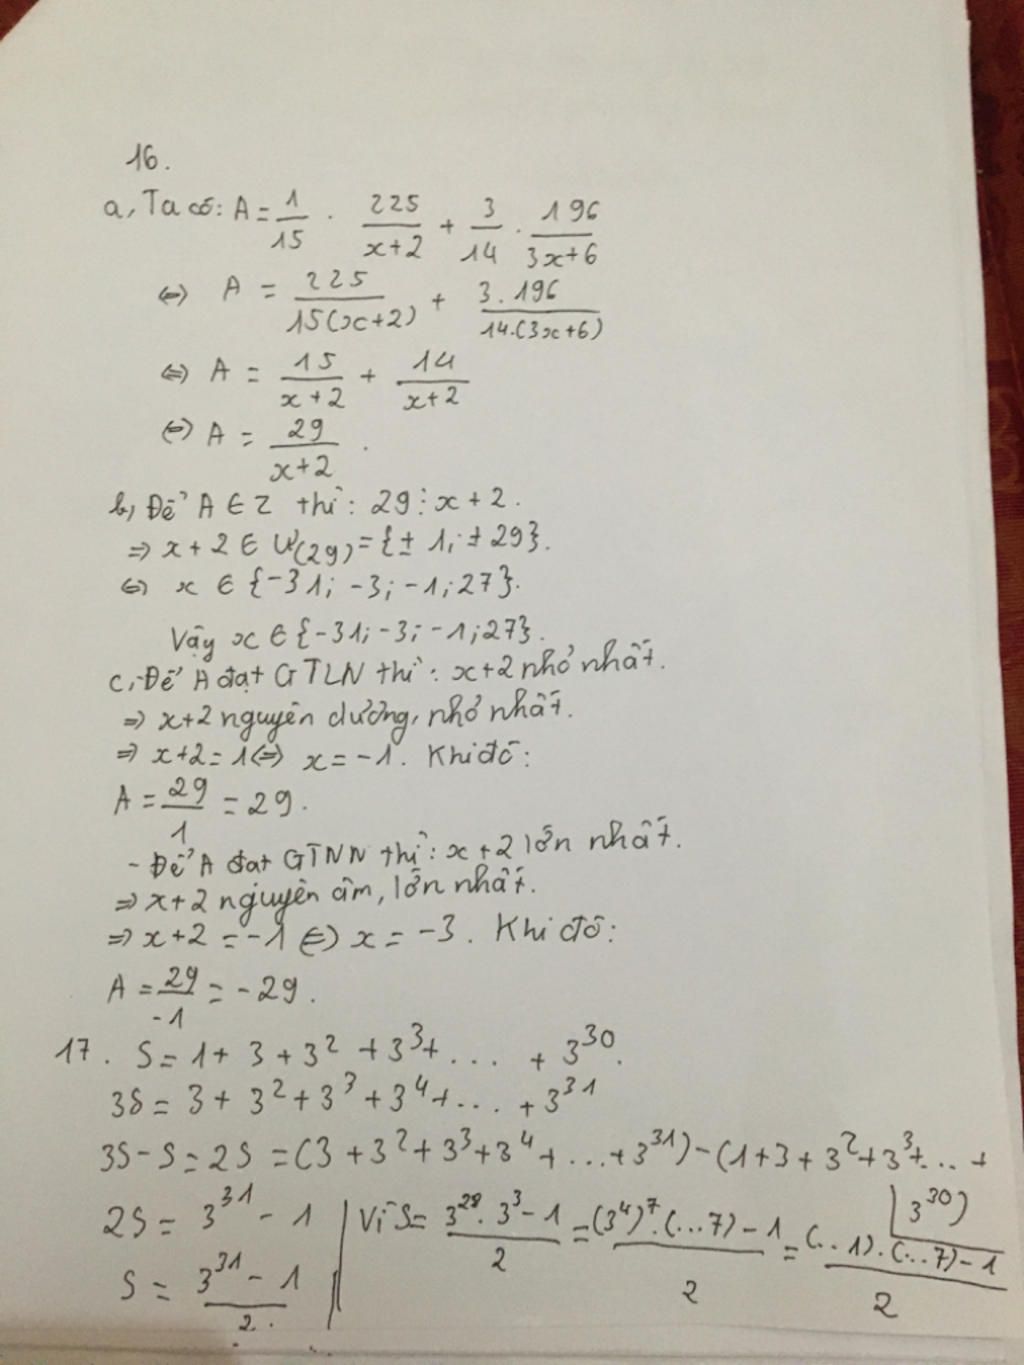 16.
a, Ta có: A = 1/15 . 225/x+2 + 3/14 . 196/3x+6
⇔ A = 225/15(x+2) + 3.196/14.(3x+6)
⇔ A = 15/x+2 + 14/x+2
⇔ A = 29/x+2 .
b, Để A ∈ Z thì: 29 ⋮ x + 2.
⇒ x + 2 ∈ Ư(29) = {± 1; ± 29}.
⇔ x ∈ {-31; -3; -1; 27}.
Vậy x ∈ {-31; -3; -1; 27}.
c, -Để A đạt GTLN thì: x+2 nhỏ nhất.
⇒ x+2 nguyên dương, nhỏ nhất.
⇒ x+2 = 1 ⇔ x = -1. Khi đó:
A = 29/1 = 29.
- Để A đạt GTNN thì: x+2 lớn nhất.
⇒ x+2 nguyên âm, lớn nhất.
⇒ x+2 = -1 ⇔ x = -3. Khi đó:
A = 29/-1 = -29.
17. S = 1 + 3 + 3² + 3³ + ... + 3³⁰.
3S = 3 + 3² + 3³ + 3⁴ + ... + 3³¹
3S - S = 2S = (3 + 3² + 3³ + 3⁴ + ... + 3³¹) - (1 + 3 + 3² + 3³ + ... + 3³⁰)
2S = 3³¹ - 1
S = 3³¹ - 1/2.
Vì S = 3²⁸ . 3³ - 1/2 = (3⁴)⁷ . (...7) - 1/2 = (...1) . (...7) - 1/2